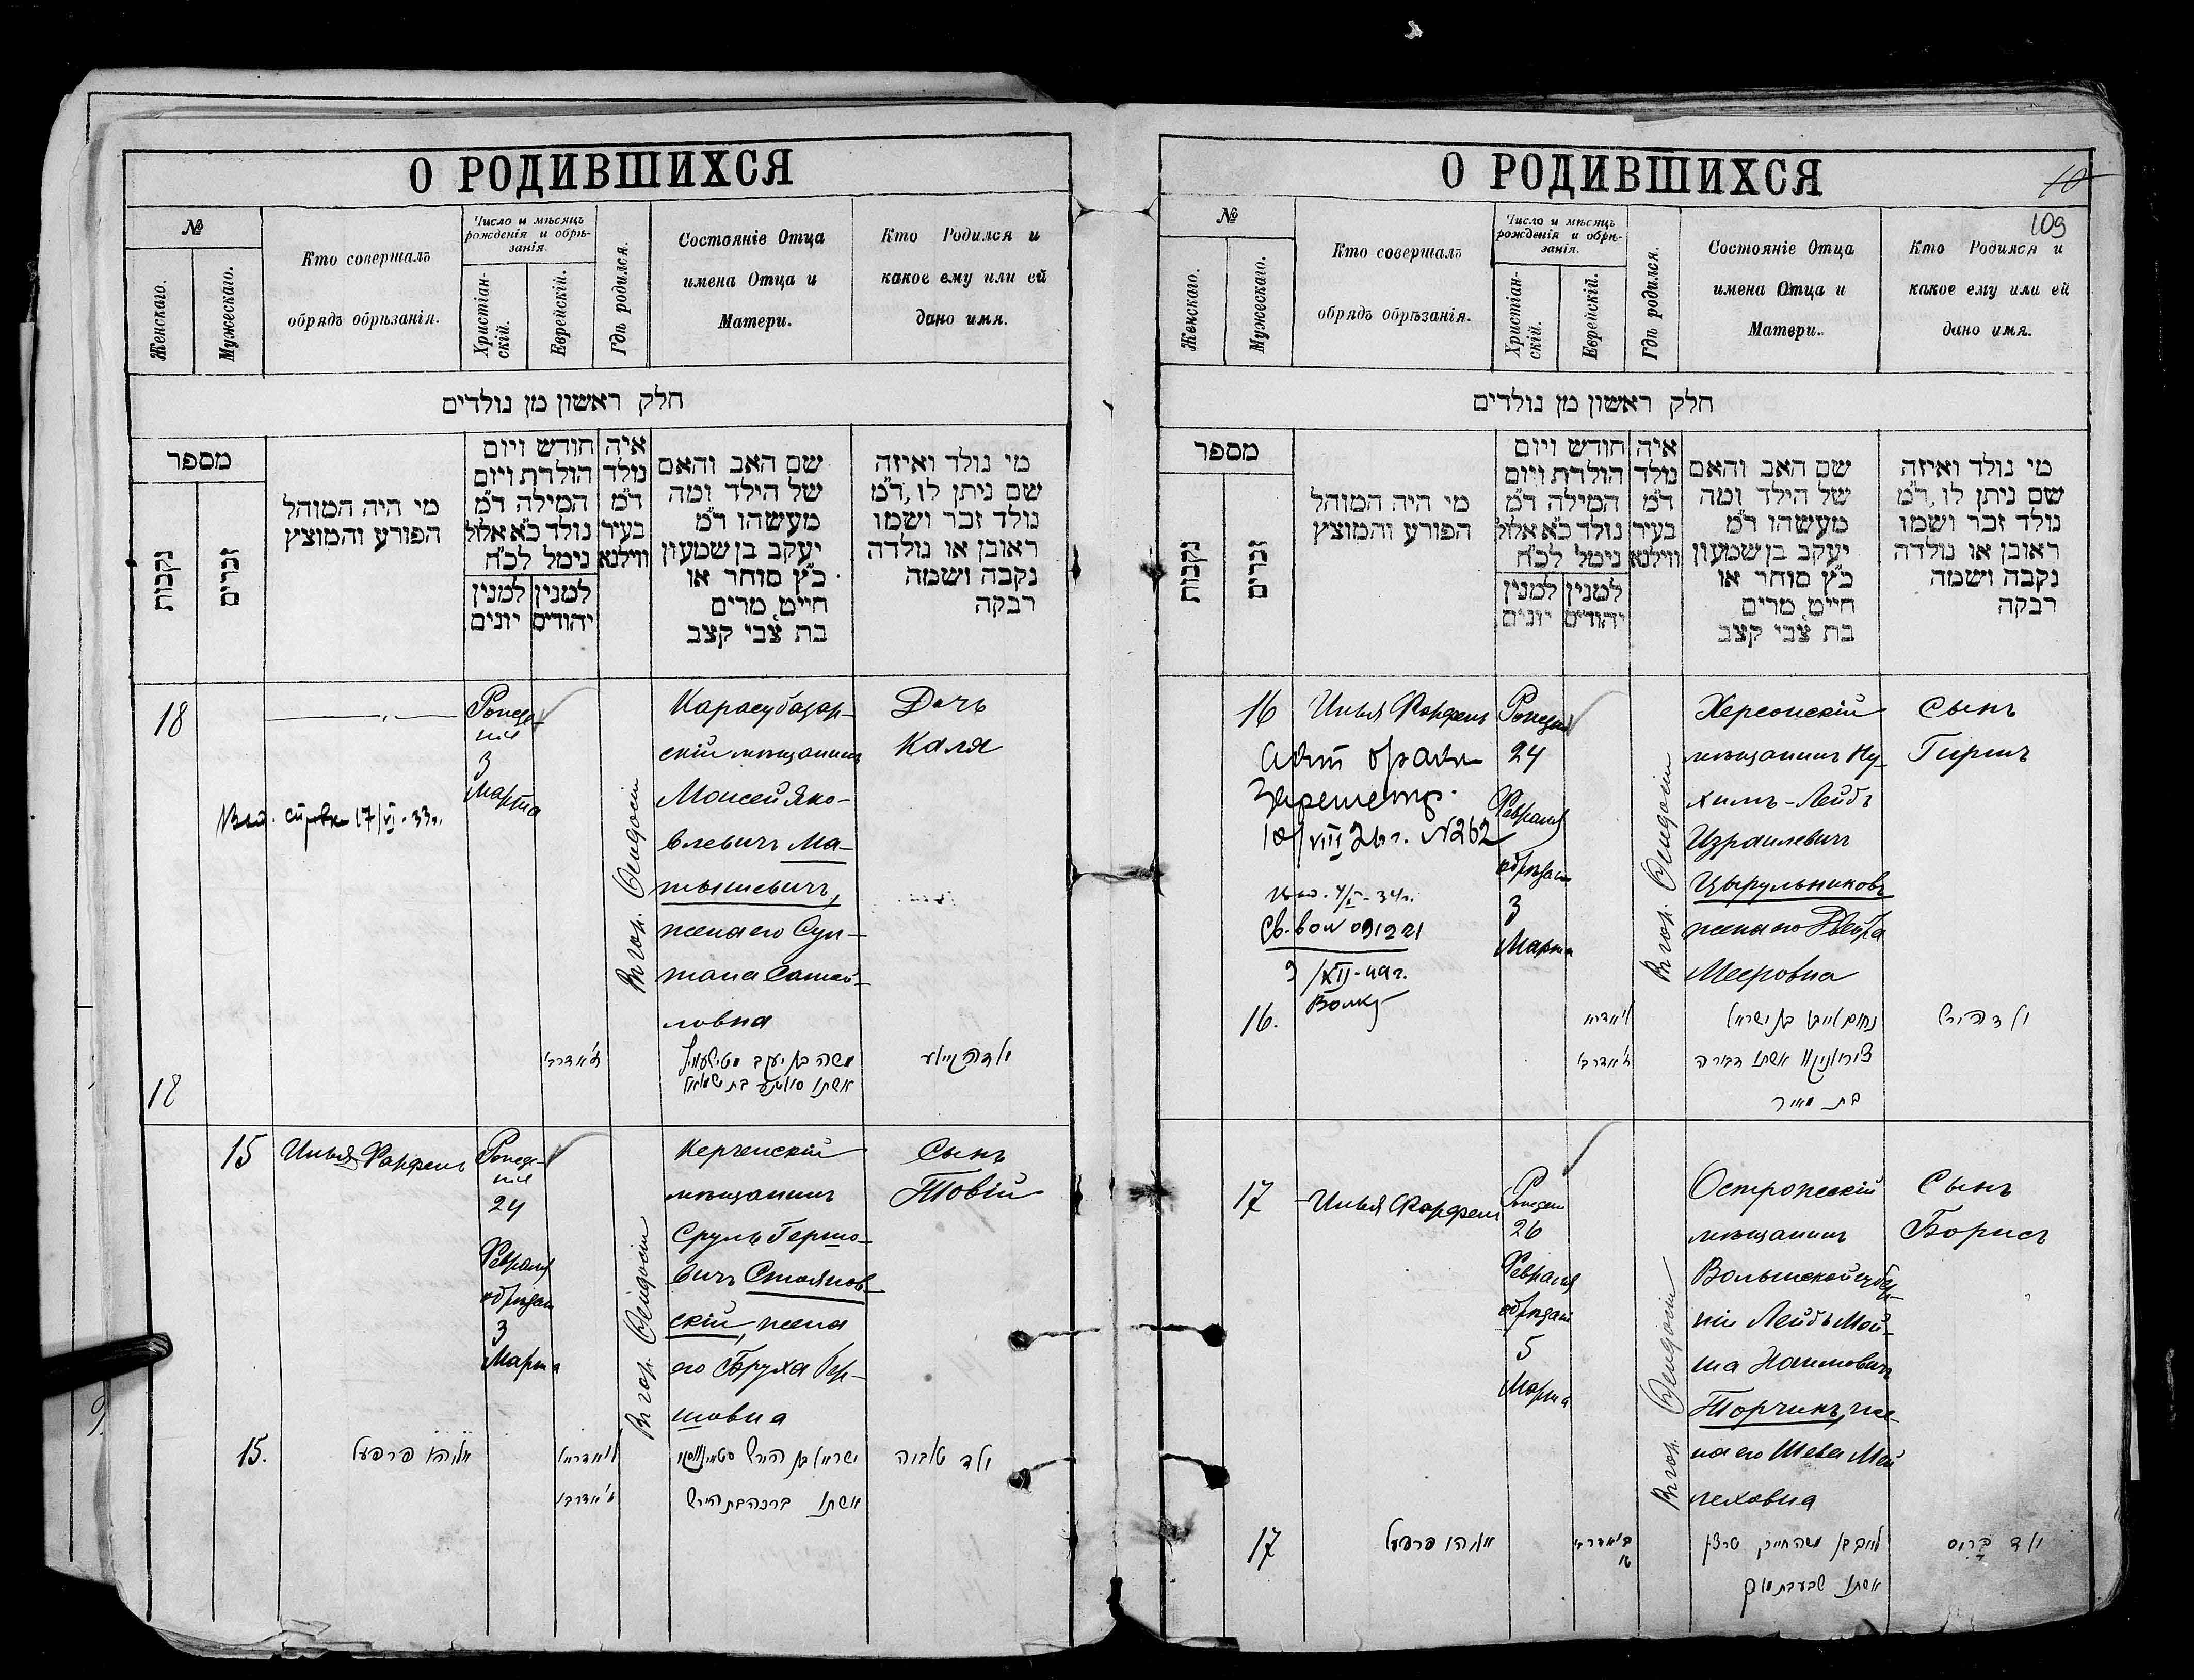 О РОДИВШИХСЯ
№
Женскаго.
Мужескаго.
Кто совершалъ
обрядъ обрѣзанія.
Число и мѣсяцъ
рожденія и обрѣ-
занія.
Христіан-
скій.
Еврейскій.
Гдѣ родился.
Состояніе Отца
имена Отца и
Матери.
Кто Родился и
какое ему или ей
дано имя.
חלק ראשון מן נולדים
מספר
נקבות
זכרים
מי היה המוהל
הפורע והמוצץ
חודש ויום
הולדת ויום
המילה ד״מ
נולד כ״א אלול
נימל לכ״ח
למנין
יונים
למנין
יהודים
איה
נולד
ד״מ
בעיר
ווילנא
שם האב והאם
של הילד ומה
מעשהו ד״מ
יעקב בן שמעון
כ״ץ סוחר או
חייט מרים
בת צבי קצב
מי נולד ואיזה
שם ניתן לו, ד״מ
נולד זכר ושמו
ראובן או נולדה
נקבה ושמה
רבקה
18
3
Марта
17/VI-33г.
Въ гор. Ѳеодосіи
Карасубазар-
скій мѣщанинъ
Моисей Яко-
влевичъ Ма-
тышевичъ,
жена его Сул-
тана Самой-
ловна
Дочь
Каля
18
משה בן יעקב
ילדה
15
Илья Фарфель
24
Февраля
обрѣзан
3
Марта
Въ гор. Ѳеодосіи
Керченскій
мѣщанинъ
Сруль Гершо-
вичъ Стоянов-
скій, жена
его Бруха Гер-
шовна
Сынъ
Товій
15.
אליהו פרפעל
ישראל בן הירש
אשתו ברכה בת הירש
ילד טוביה
О РОДИВШИХСЯ
10
109
№
Женскаго.
Мужескаго.
Кто совершалъ
обрядъ обрѣзанія.
Число и мѣсяцъ
рожденія и обрѣ-
занія.
Христіан-
скій.
Еврейскій.
Гдѣ родился.
Состояніе Отца
имена Отца и
Матери.
Кто Родился и
какое ему или ей
дано имя.
חלק ראשון מן נולדים
מספר
נקבות
זכרים
מי היה המוהל
הפורע והמוצץ
חודש ויום
הולדת ויום
המילה ד״מ
נולד כ״א אלול
נימל לכ״ח
למנין
יונים
למנין
יהודים
איה
נולד
ד״מ
בעיר
ווילנא
שם האב והאם
של הילד ומה
מעשהו ד״מ
יעקב בן שמעון
כ״ץ סוחר או
חייט מרים
בת צבי קצב
מי נולד ואיזה
שם ניתן לו, ד״מ
נולד זכר ושמו
ראובן או נולדה
נקבה ושמה
רבקה
16
Илья Фарфель
Акт о браке
№262
24
Февраля
обрѣзан
3
Марта
Въ гор. Ѳеодосіи
Херсонскій
мѣщанинъ Ну-
химъ-Лейбъ
Израилевичъ
Цырульниковъ
жена его Двейра
Мееровна
Сынъ
Гиршъ
16.
נחום לייב בן ישראל
אשתו דבורה
בת מאיר
ילד הירש
17
Илья Фарфель
26
Февраля
обрѣзан
5
Марта
Въ гор. Ѳеодосіи
Острожскій
мѣщанинъ
Волынской губер-
ніи Лейбъ Мой-
ша Хаимовичъ
Торчинъ, же-
на его Шева Мой
леховна
Сынъ
Борисъ
17
אליהו פרפעל